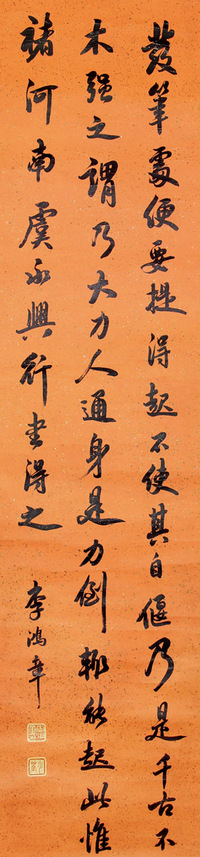 發筆處便要提得起不使其自偃乃是千古不
木强之謂乃大力人通身是力倒輙能起此惟
褚河南虞永興行書得之
李鴻章